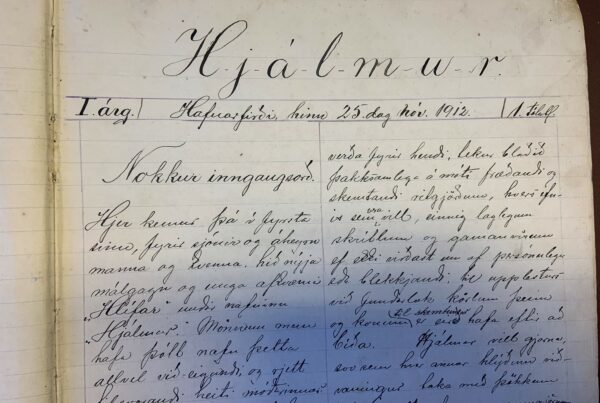 H-j-á-l-m-u-r.
I. árg. Hafnarfirði, hinn 25. dag Nóv. 1912. 1. tölubl.
Nokkur inngangsorð.
Hjer kemur þá í fyrsta
sinn, fyrir sjónir og áheyrn
manna og kvenna, hið nýja
málgagn og unga afkvæmi
"Hlífar" undir nafninu
"Hjálmur." Mönnum mun
hafa þótt nafn þetta
allvel við-eigandi og rjett
heiti móðurinnar
verða fyrir hendi, tekur blaðið
þakksamlega á móti fræðandi og
skemtandi ritgjörðum, hvers efn-
is sem vera vill, einnig laglegum
skrítlum og gamanvísum
ef ekki virðast um of persónulegar
eða blekkjandi. Er upplestur
við fundarlok körlum þeim
og konum til skemtunar er hafa eftir að
bíða. Hjálmur vill gjarna,
svo sem hver annar hlýðinn við-
vaningur taka með þökkum